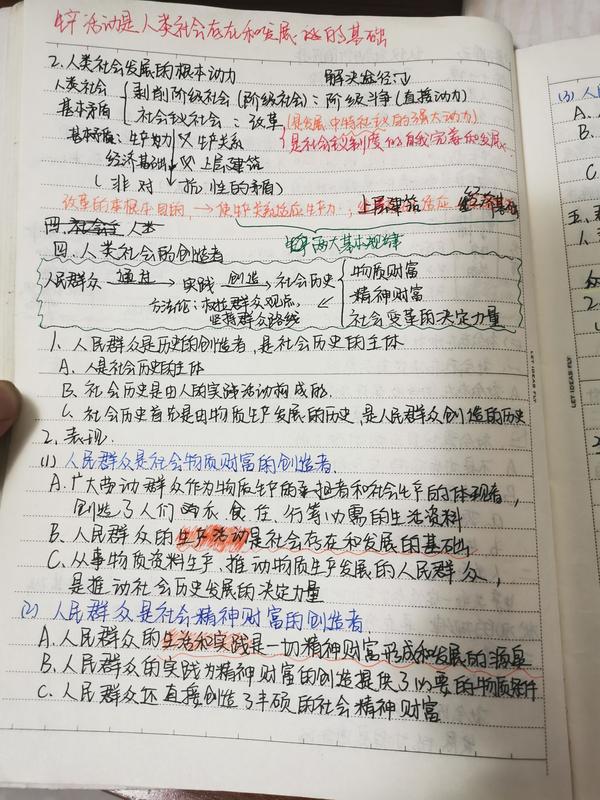 生产活动是人类社会存在和发展的基础
2.人类社会发展的根本动力 解决途径
人类社会 { 剥削阶级社会(阶级社会):阶级斗争(直接动力)
基本矛盾 社会主义社会:改革 (是发展中特社主义的强大动力)
是社会主义制度的自我完善和发展。
基本矛盾:生产力 生产关系
经济基础 上层建筑
(非对抗性的矛盾)
改革的根本目的,→使生产关系适应生产力, 上层建筑适应经济基础
两大基本规律
四.人类社会的创造者
人民群众 通过→ 实践 创造→ 社会历史 { 物质财富
精神财富
社会变革的决定力量
方法论:树立群众观点,
坚持群众路线
1.人民群众是历史的创造者,是社会历史的主体
A.人是社会历史的主体
B.社会历史是由人的实践活动构成的.
C.社会历史首先是由物质生产发展的历史,是人民群众创造的历史
2.表现.
(1)人民群众是社会物质财富的创造者.
A.广大劳动群众作为物质生产的承担者和社会生产的体现者,
创造了人们的衣、食、住、行等必需的生活资料
B.人民群众的生产活动是社会存在和发展的基础
C.从事物质资料生产、推动物质生产发展的人民群众,
是推动社会历史发展的决定力量
(2)人民群众是社会精神财富的创造者
A.人民群众的生活和实践是一切精神财富形成和发展的源泉
B.人民群众的实践为精神财富的创造提供了必要的物质条件
C.人民群众还直接创造了丰硕的社会精神财富
LET IDEAS FLY
LET IDEAS FLY
(3)人
A.
B.
C
五.
1.
2